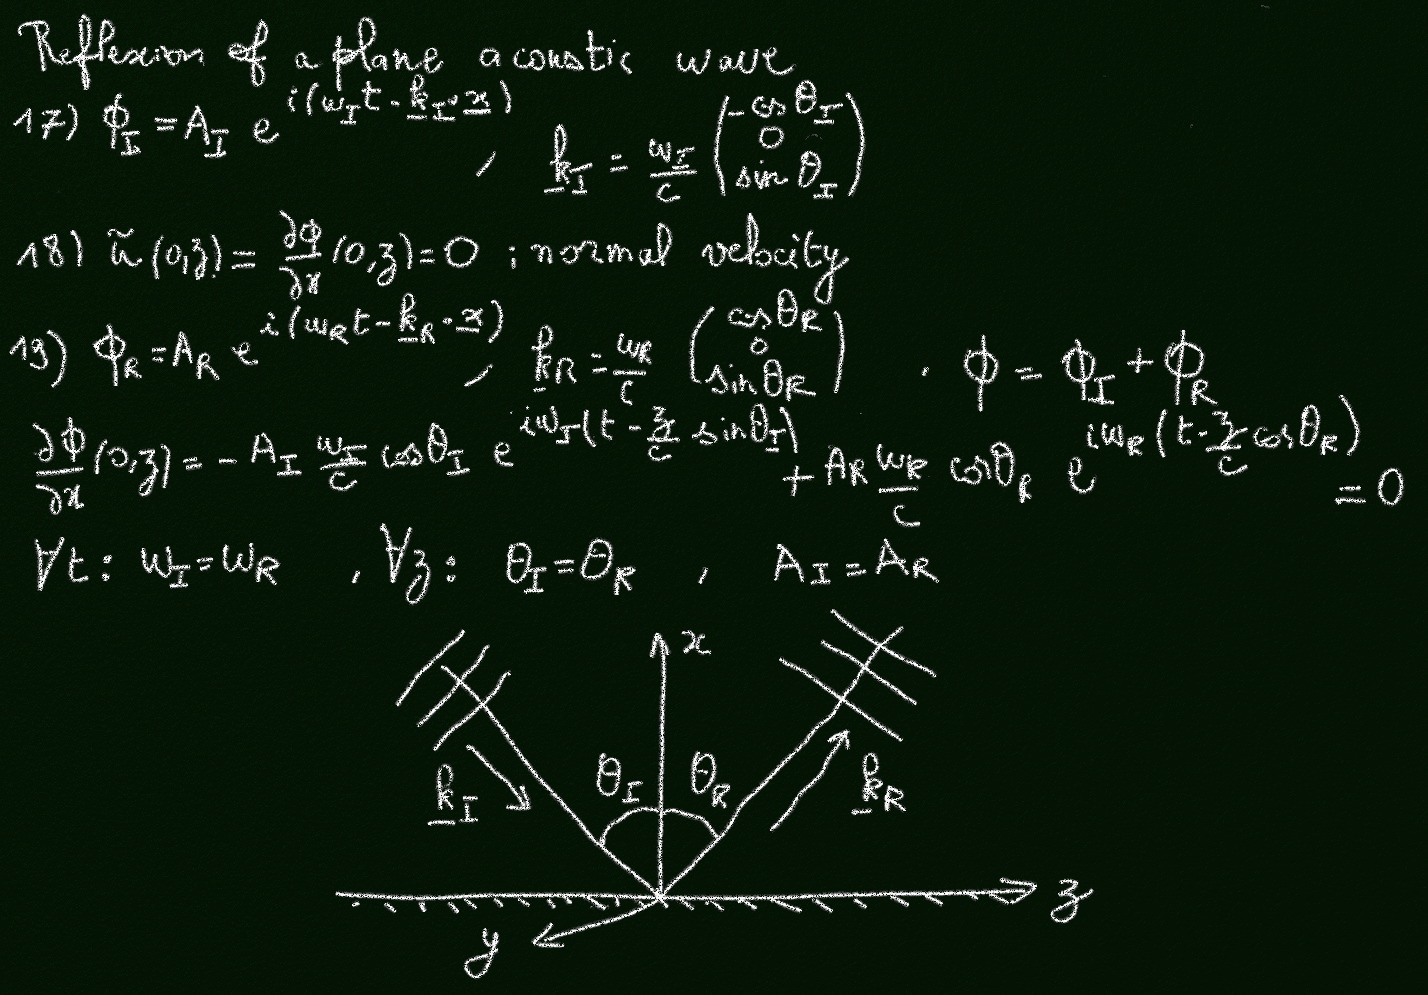 Reflexion of a plane acoustic wave
17) ϕ_I = A_I e^{i(ω_I t - k_I · x)} , k_I = ω_I/c (-cos θ_I, 0, sin θ_I)
18) ũ(0,z) = ∂ϕ/∂x (0,z) = 0 ; normal velocity
19) ϕ_R = A_R e^{i(ω_R t - k_R · x)} , k_R = ω_R/c (cos θ_R, 0, sin θ_R) . ϕ = ϕ_I + ϕ_R
∂ϕ/∂x (0,z) = - A_I ω_I/c cos θ_I e^{iω_I(t - z/c sin θ_I)} + A_R ω_R/c cos θ_R e^{iω_R(t - z/c cos θ_R)} = 0
∀t : ω_I = ω_R , ∀z : θ_I = θ_R , A_I = A_R
x
k_I θ_I θ_R k_R
z
y